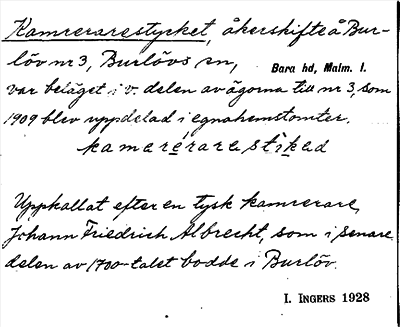 Kamrerarestycket, åkerskifte å Bur-
löv nr 3, Burlövs sn, Bara hd, Malm. l.
var beläget i v. delen av ägorna till nr 3, som
1909 blev uppdelad i egnahemstomter.
kamererarestiked
Uppkallat efter en tysk kamrerare,
Johann Friedrich Albrecht, som i senare
delen av 1700-talet bodde i Burlöv.
I. INGERS 1928